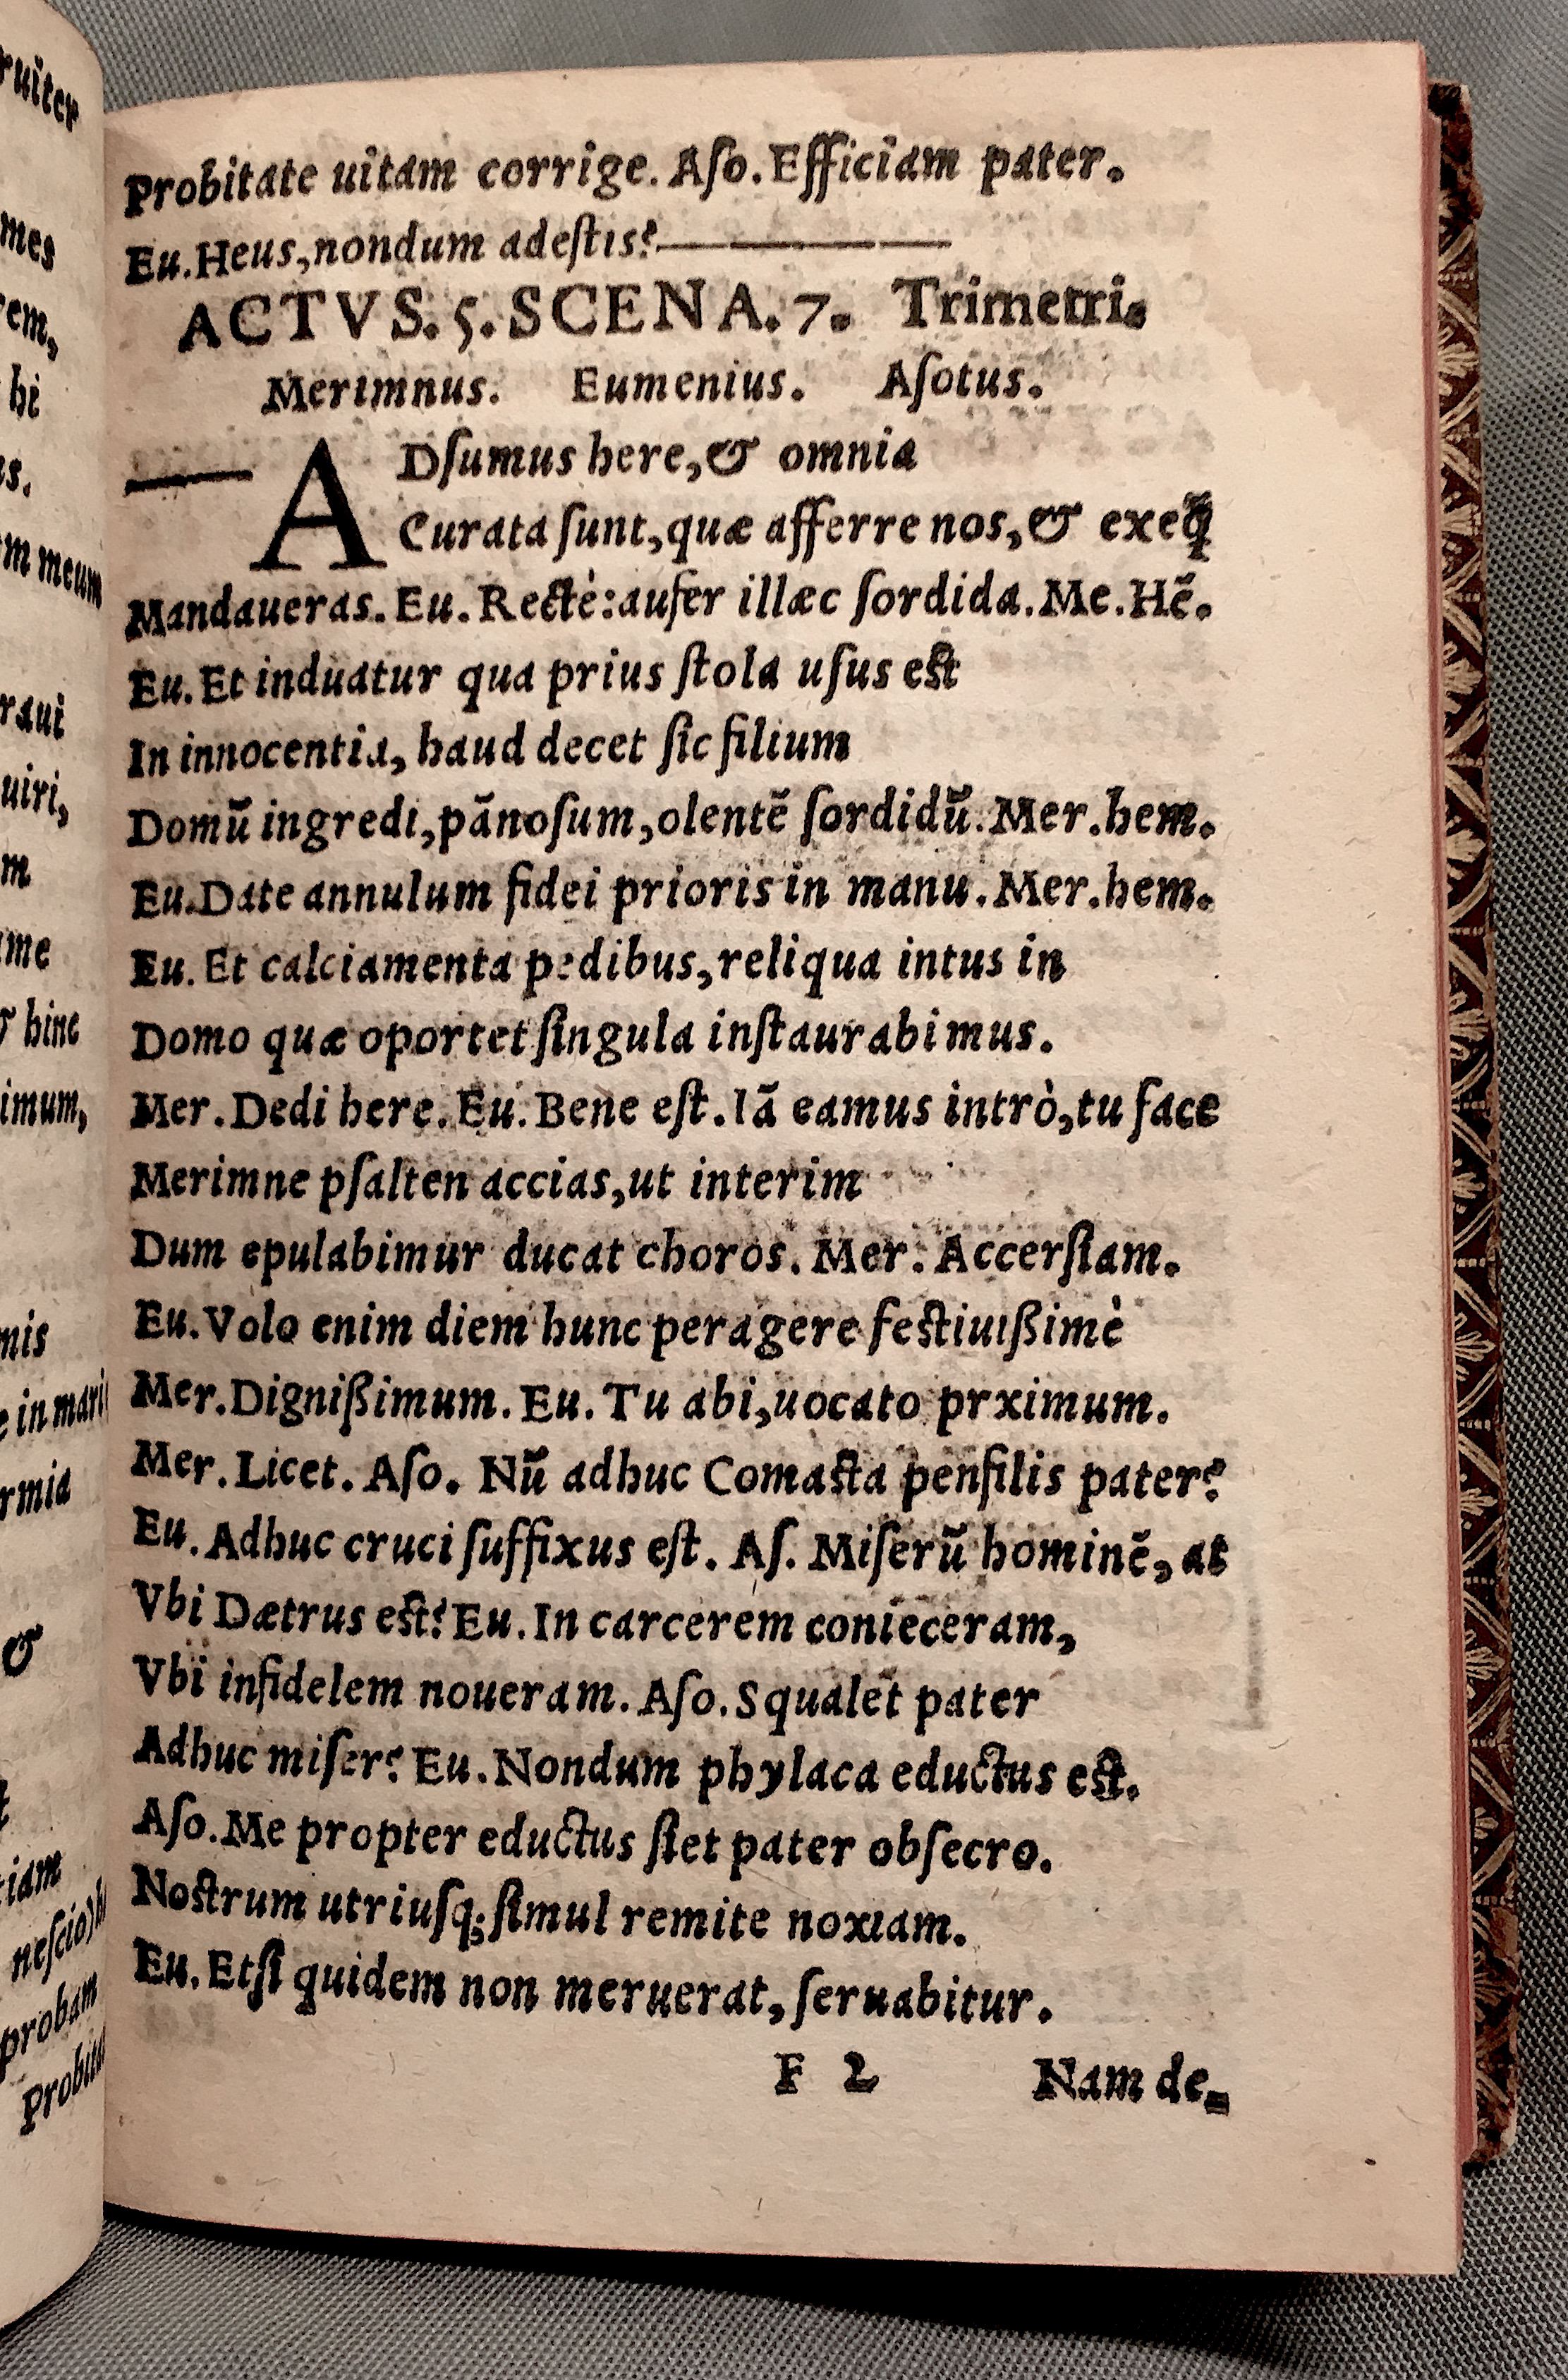 Probitate uitam corrige. Aſo. Efficiam pater.
Eu. Heus, nondum adeſtis?
ACTVS. 5. SCENA. 7. Trimetri.
Merimnus. Eumenius. Aſotus.
ADſumus here, & omnia
Curata ſunt, quæ afferre nos, & exeq̃
Mandaueras. Eu. Rectè: aufer illæc ſordida. Me. Hē.
Eu. Et induatur qua prius ſtola uſus eſt
In innocentia, haud decet ſic filium
Domū ingredi, pānoſum, olentē ſordidū. Mer. hem.
Eu. Date annulum fidei prioris in manu. Mer. hem.
Eu. Et calciamenta pedibus, reliqua intus in
Domo quæ oportet ſingula inſtaurabimus.
Mer. Dedi here. Eu. Bene eſt. Iā eamus intrò, tu face
Merimne pſalten accias, ut interim
Dum epulabimur ducat choros. Mer. Accerſiam.
Eu. Volo enim diem hunc peragere feſtiuißimè
Mer. Dignißimum. Eu. Tu abi, uocato prximum.
Mer. Licet. Aſo. Nū adhuc Comaſta penſilis pater?
Eu. Adhuc cruci ſuffixus eſt. Aſ. Miſerū hominē, at
Vbi Dætrus eſt? Eu. In carcerem conieceram,
Vbi infidelem noueram. Aſo. Squalet pater
Adhuc miſer? Eu. Nondum phylaca eductus eſt.
Aſo. Me propter eductus ſiet pater obſecro.
Noſtrum utriuſq; ſimul remite noxiam.
Eu. Etſi quidem non meruerat, ſeruabitur.
F 2 Nam de-